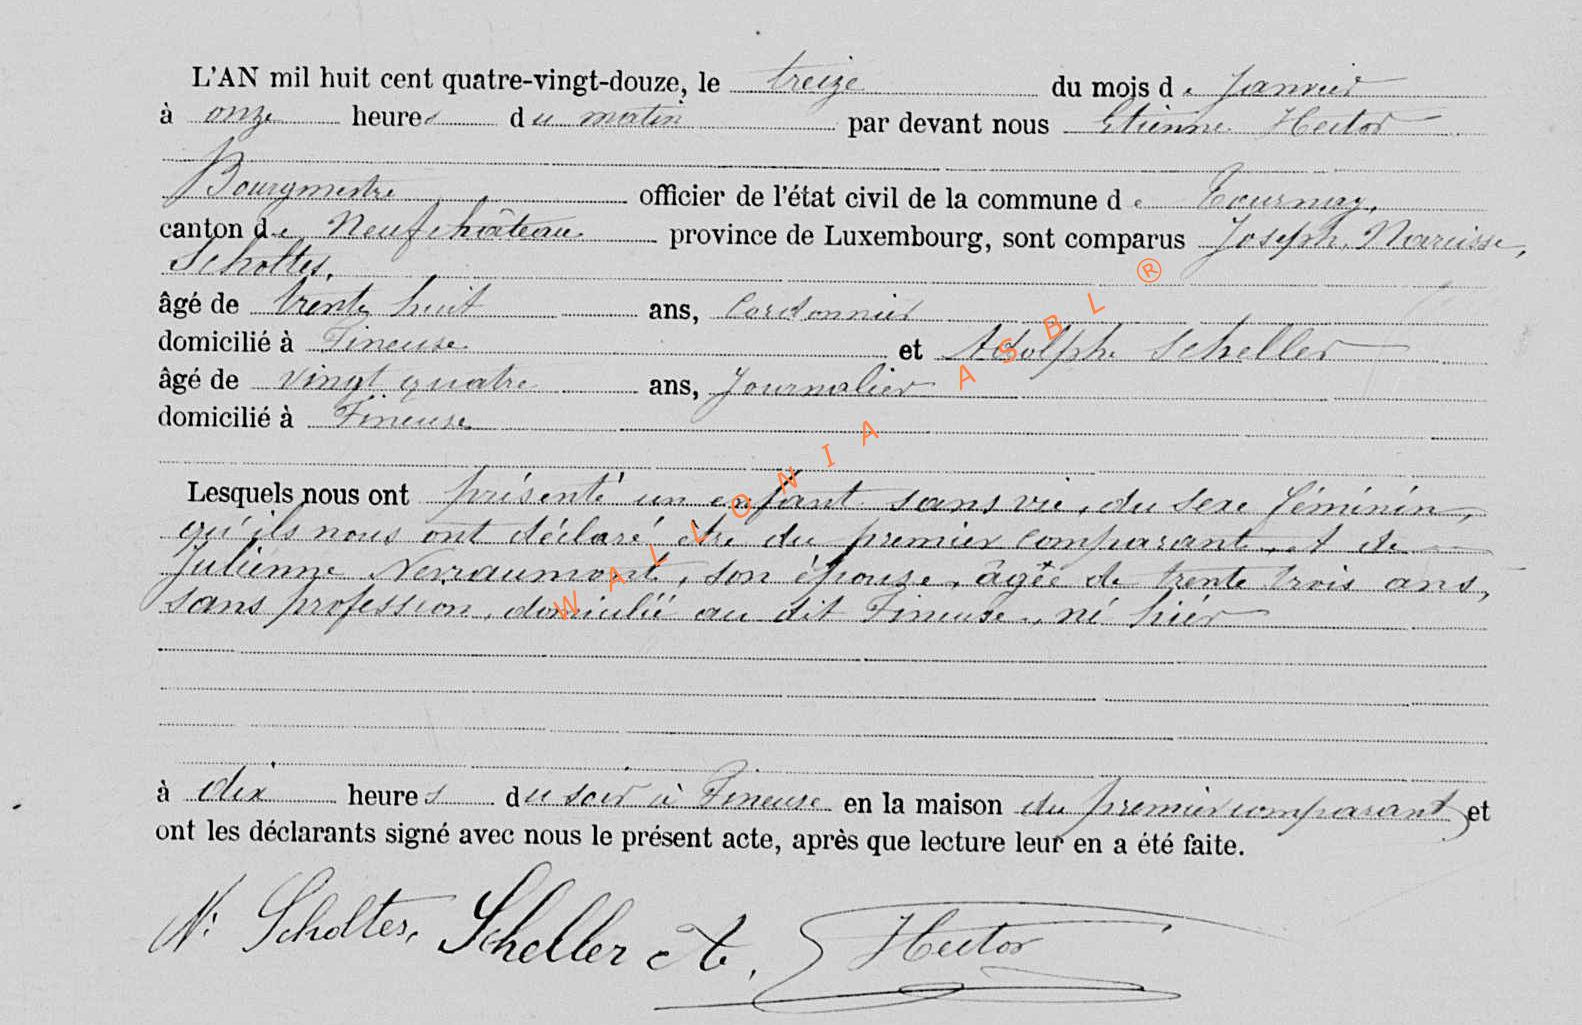 L'AN mil huit cent quatre-vingt-douze, le treize du mois de Janvier
à onze heures du matin par devant nous Etienne Hector
Bourgmestre officier de l'état civil de la commune de Tournay,
canton de Neufchâteau province de Luxembourg, sont comparus Joseph, Narcisse,
Scholtes,
âgé de trente huit ans, Cordonnier
domicilié à Fineuse et Adolphe Scheller
âgé de vingt quatre ans, Journalier
domicilié à Fineuse
Lesquels nous ont présenté un enfant sans vie, du sexe féminin,
qu'ils nous ont déclaré être du premier comparant, et de
Julienne Nevraumont, son épouse, âgée de trente trois ans,
sans profession, domicilié au dit Fineuse, né hier
à dix heures du soir à Fineuse en la maison du premier comparant et
ont les déclarants signé avec nous le présent acte, après que lecture leur en a été faite.
N. Scholtes, Scheller A, Hector
WALLONIA ASBL ®